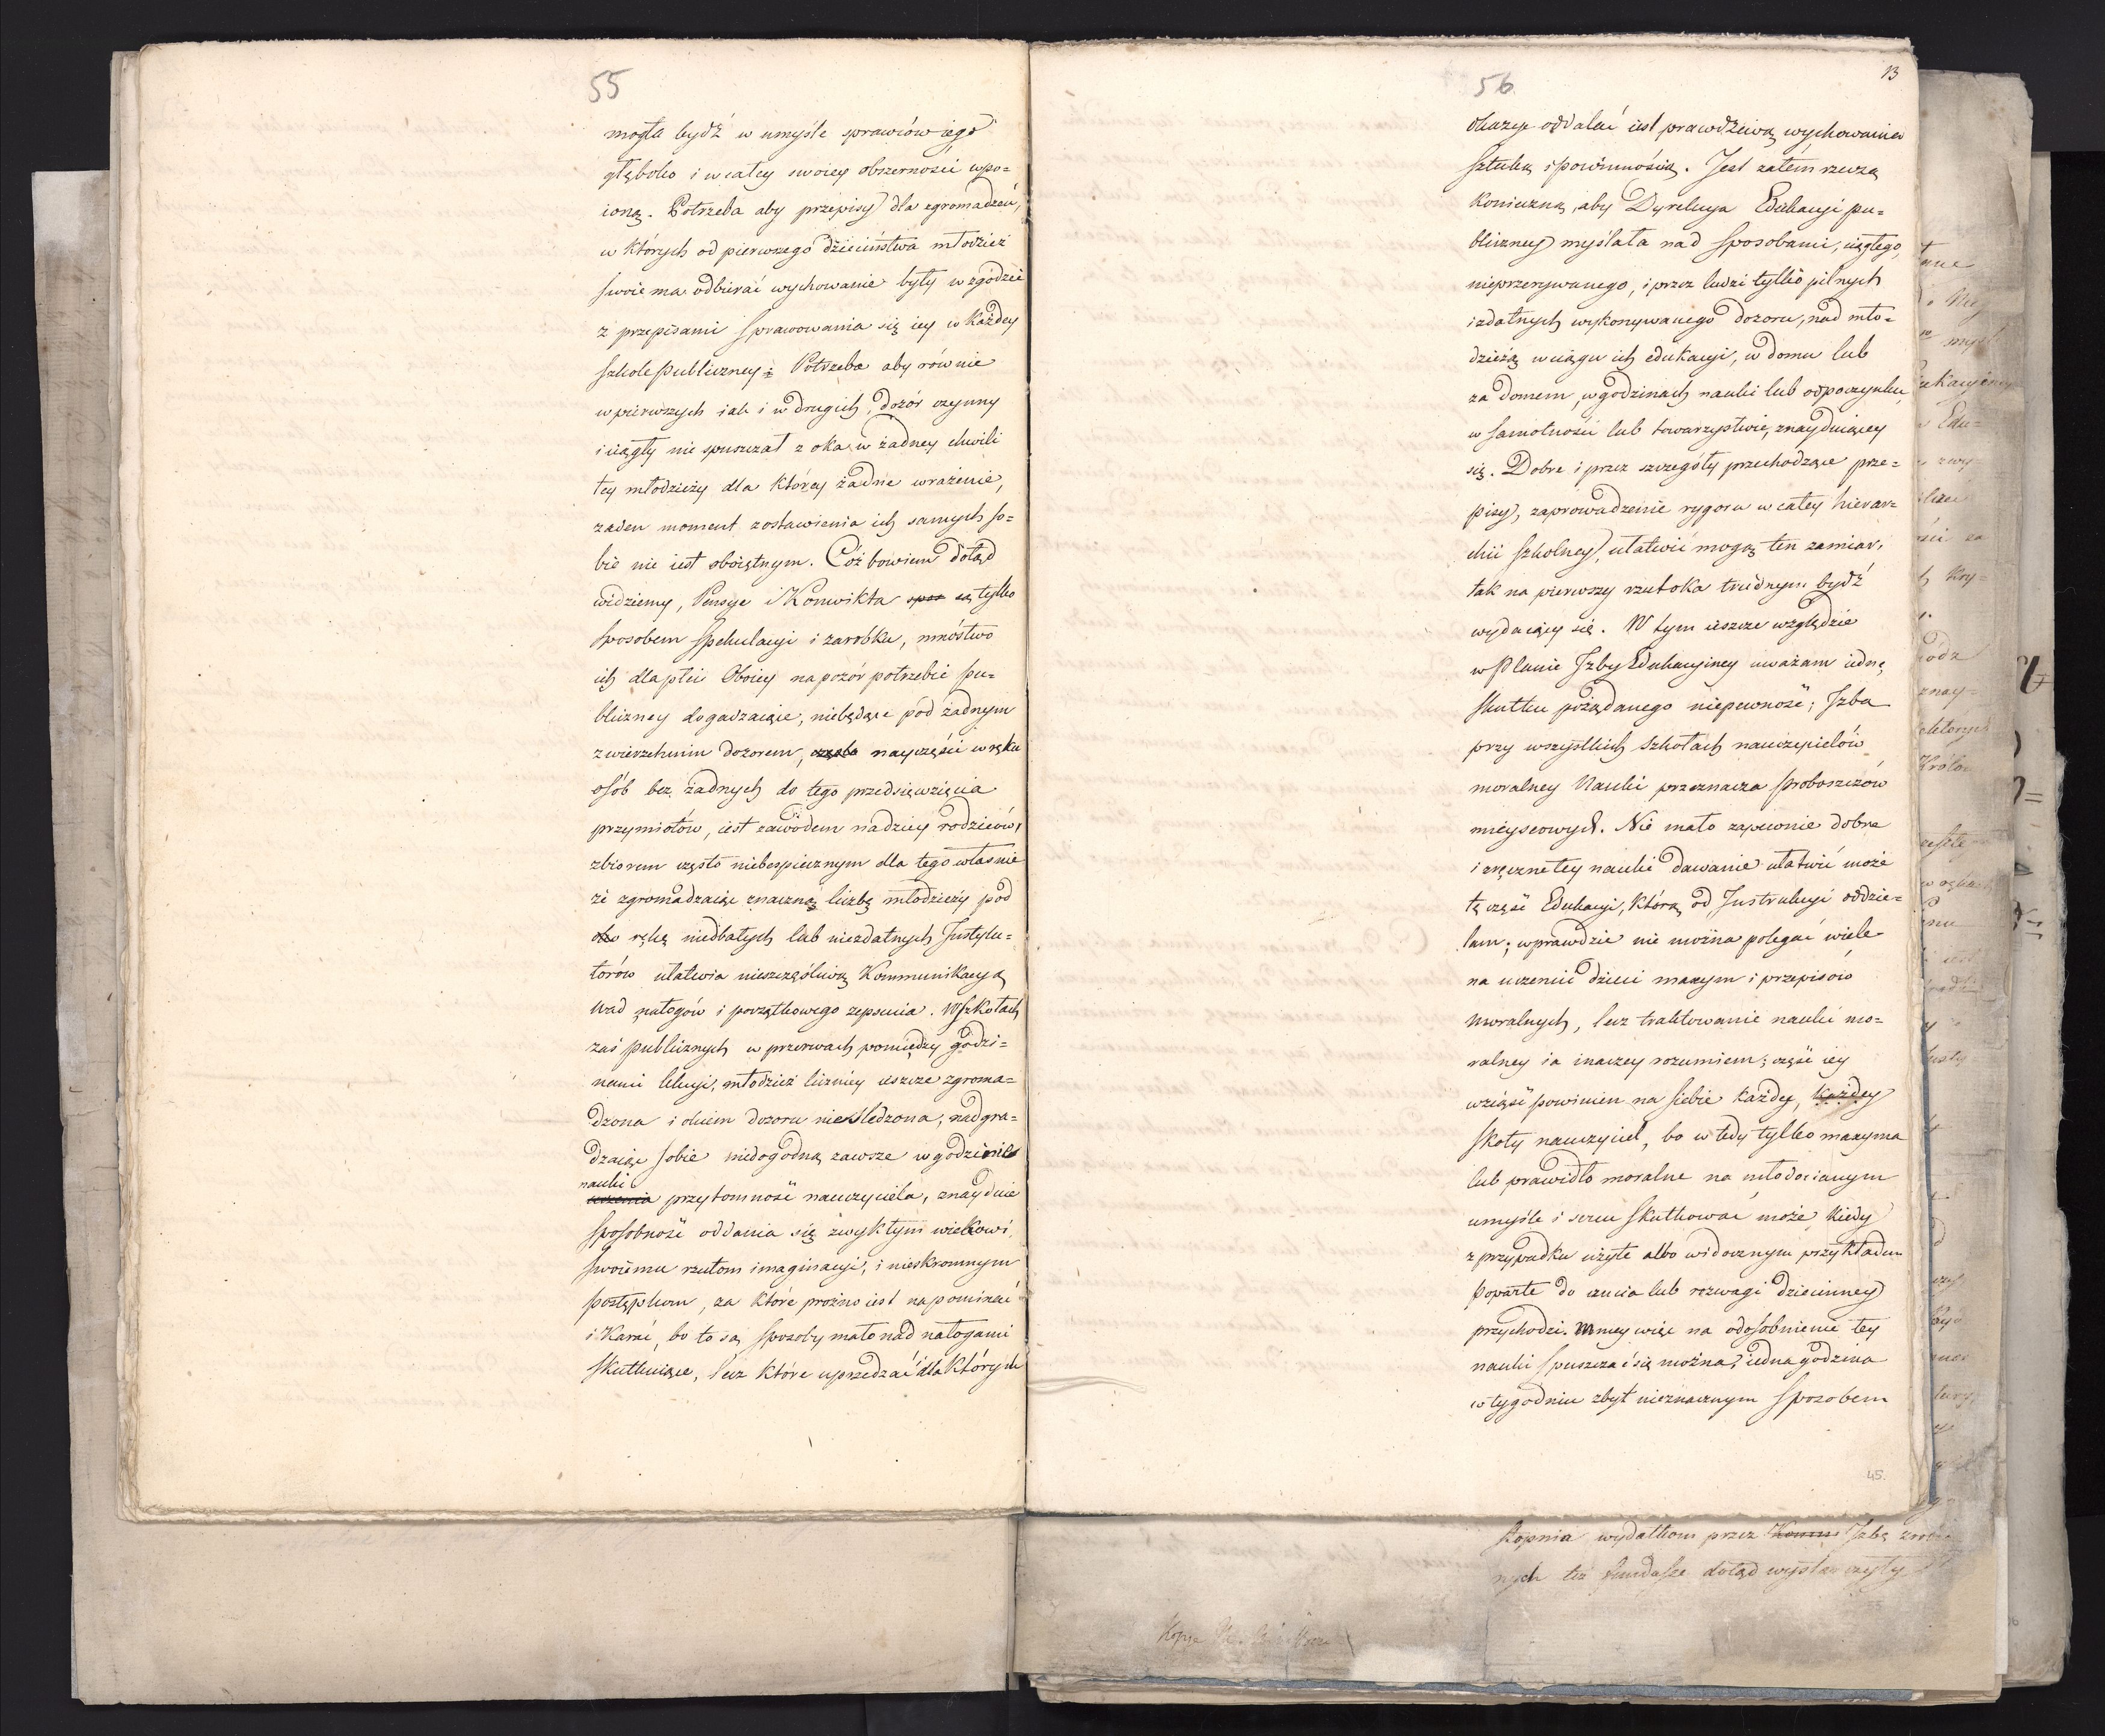 55
mogła bydź w umyśle sprawców iego
głęboko i w całey swoiey obszerności wpo=
ioną. Potrzeba aby przepisy dla zgromadzeń,
w których od pierwszego dzieciństwa młodzież
swoie ma odbierać wychowanie były w zgodzie
z przepisami sprawowania się iey w każdey
szkole publiczney; Potrzeba aby równie
w pierwszych iak i w drugich, dozór czynny
i ciągły nie spuszczał z oka w żadney chwili
tey młodzieży dla którey żadne wrażenie,
żaden moment zostawienia ich samych so=
bie nie iest oboiętnym. Cóż bowiem dotąd
widziemy, Pensye i Konwikta spos są tylko
sposobem spekulacyi i zarobku, mnóstwo
ich dla płci Oboiey na pozór potrzebie pu=
bliczney dogadzaiące, niebędące pod żadnym
zwierzchnim dozorem, często nayczęści w ręku
osób bez żadnych do tego przedsięwzięcia
przymiotów, iest zawodem nadziey rodziców,
zbiorem często niebespiecznym dla tego właśnie
że zgromadzaiąc znaczną liczbę młodzieży pod
oko ręką niedbałych lub niezdatnych Instytu=
torów ułatwia nieszczęśliwą Kommunikacyą
wad nałogów i początkowego zepsucia. W szkołach
zaś publicznych w przerwach pomiędzy godzi=
nami lekcyi, młodzież liczniey ieszcze zgroma=
dzona i okiem dozoru nieśledzona, nadgra=
dzaiąc sobie niedogodną zawsze w godzinie
nauki
uczenia przytomność nauczyciela, znayduie
sposobność oddania się zwykłym wiekowi
swoiemu rzutom imaginacyi, i nieskromnym
postępkom, za które prożno iest napominać
i karać, bo to są sposoby mało nad nałogami
skutkuiące, lecz które uprzedzać i dla których
56
13
okazye oddalać iest prawdziwą wychowania
sztuką i powinnością. Jest zatém rzeczą
konieczną, aby Dyrekcya Edukacyi pu=
bliczney myślała nad sposobami, ciągłego,
nieprzerywanego, i przez ludzi tylko pilnych
i zdatnych wykonywanego dozoru, nad mło=
dzieżą w ciągu ich edukacyi, w domu lub
za domem, w godzinach nauki lub odpoczynku,
w samotności lub towarzystwie, znayduiącey
się. Dobre i przez szczegóły przechodzące prze=
pisy, zaprowadzenie rygoru w całey hierar=
chii szkolney, ułatwić mogą ten zamiar,
tak na pierwszy rzut oka trudnym bydź
wydaiący się. W tym ieszcze względzie
w Planie Izby Edukacyiney uważam iedną
skutku pożądanego niepewność; Izba
przy wszystkich szkołach nauczycielów
moralney Nauki przeznacza proboszczów
mieyscowych. Nie mało zapewnie dobre
i zręczne tey nauki dawanie ułatwić może
tę część Edukacyi, którą od Instrukcyi oddzie=
lam; wprawdzie nie można polegać wiele
na uczeniu dzieci maxym i przepisów
moralnych, lecz traktowanie nauki mo=
ralney ia inaczey rozumiem; część iey
wziąść powinien na siebie każdy, każdey
skoły nauczyciel, bo wtedy tylko maxyma
lub prawidło moralne na młodocianym
umyśle i sercu skutkować może, kiedy
z przypadku użyte albo widocznym przykładem
poparte do czucia lub rozwagi dziecinney
przychodzi. Mniey więc na odosobnienie tey
nauki spuszczać się można, iedna godzina
w tygodniu zbyt nieznacznym sposobem
45.
stopnia wydatkom przez Komm Izbę zrobio
nych też fundusze dotąd wystarczyły